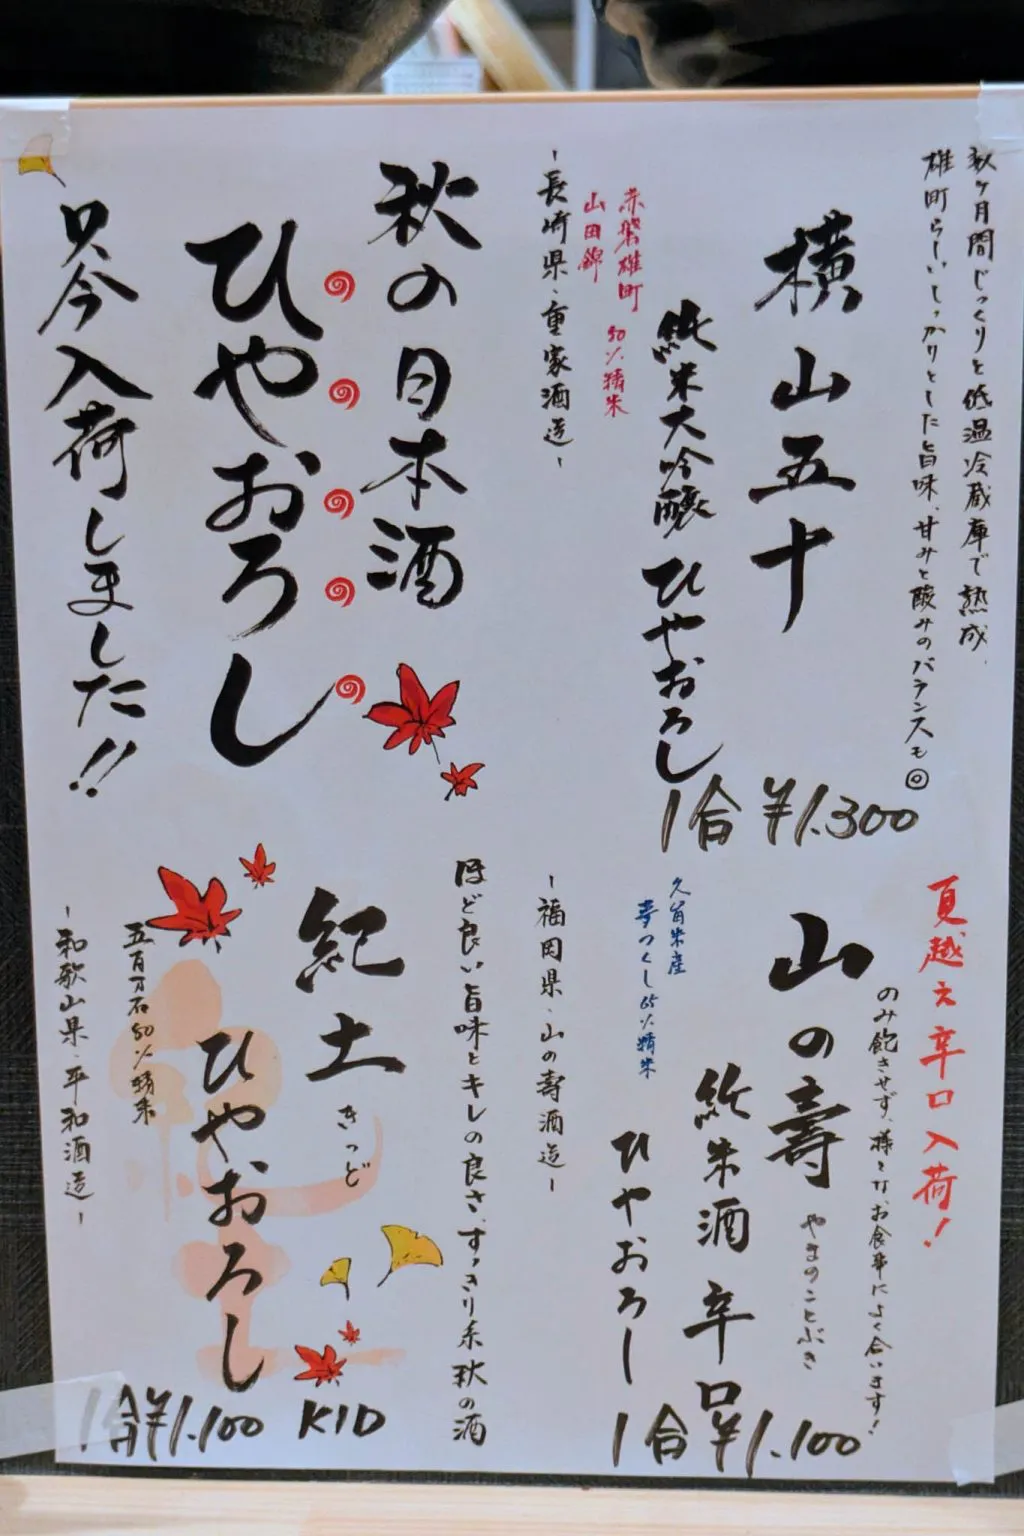 数ヶ月間じっくりと低温冷蔵庫で熟成、
雄町らしいしっかりとした旨味、甘みと酸みのバランスも◎
横山五十
純米大吟醸 ひやおろし
赤磐雄町
山田錦
50%精米
-長崎県・重家酒造-
1合 ¥1.300
秋の日本酒
ひやおろし
只今入荷しました!!
夏越え辛口入荷!
のみ飽きせず、様々な、お食事によく合います!
山の壽
やまのことぶき
純米酒 辛口
ひやおろし
久留米産
夢つくし65%精米
-福岡県・山の壽酒造-
1合 ¥1.100
ほど良い旨味とキレの良さ、すっきり系秋の酒
紀土
きっど
ひやおろし
五百万石50%精米
-和歌山県・平和酒造-
1合¥1.100
KID